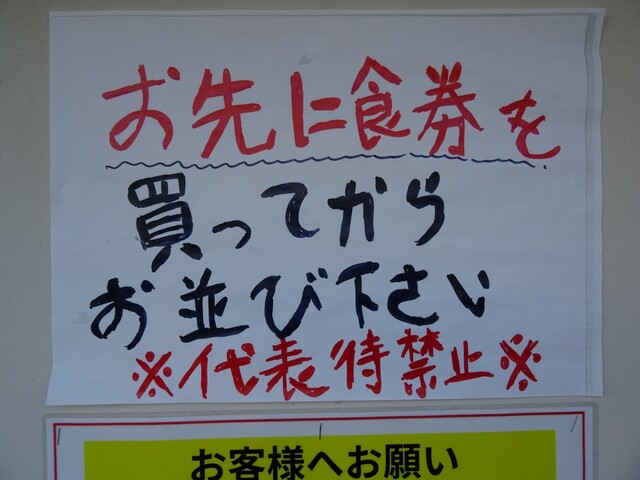 お先に食券を
買ってから
お並び下さい
※代表待禁止※
お客様へお願い